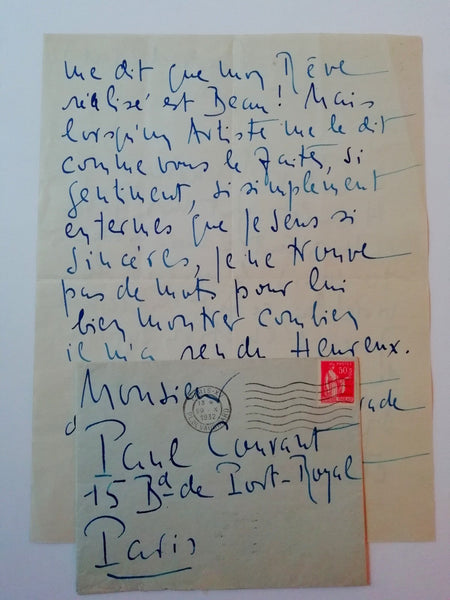 me dit que mon Rêve
réalisé est Beau! Mais
lorsqu'un Artiste me le dit
comme vous le faites, si
gentiment, si simplement
en termes que je sens si
sincères, je ne trouve
pas de mots pour lui
bien montrer combien
il m'a rendu Heureux.
Monsieur
Paul Courant
15 Bd de Port-Royal
Paris
50c
1932